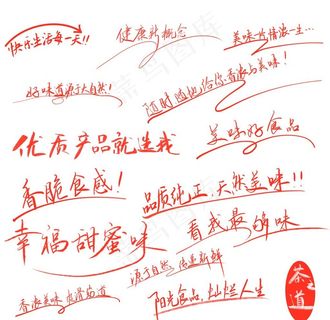 快乐生活每一天!!
健康新概念
美味传情浓一生...
好味道源于大自然!
随时随地给你香浓与美味!
优质产品就选我
美味好食品
香脆食感!
品质纯正,天然美味!!
看我最够味
幸福甜蜜味
源于自然 传承新鲜
香浓美味
阳光食品,灿烂人生
茶道